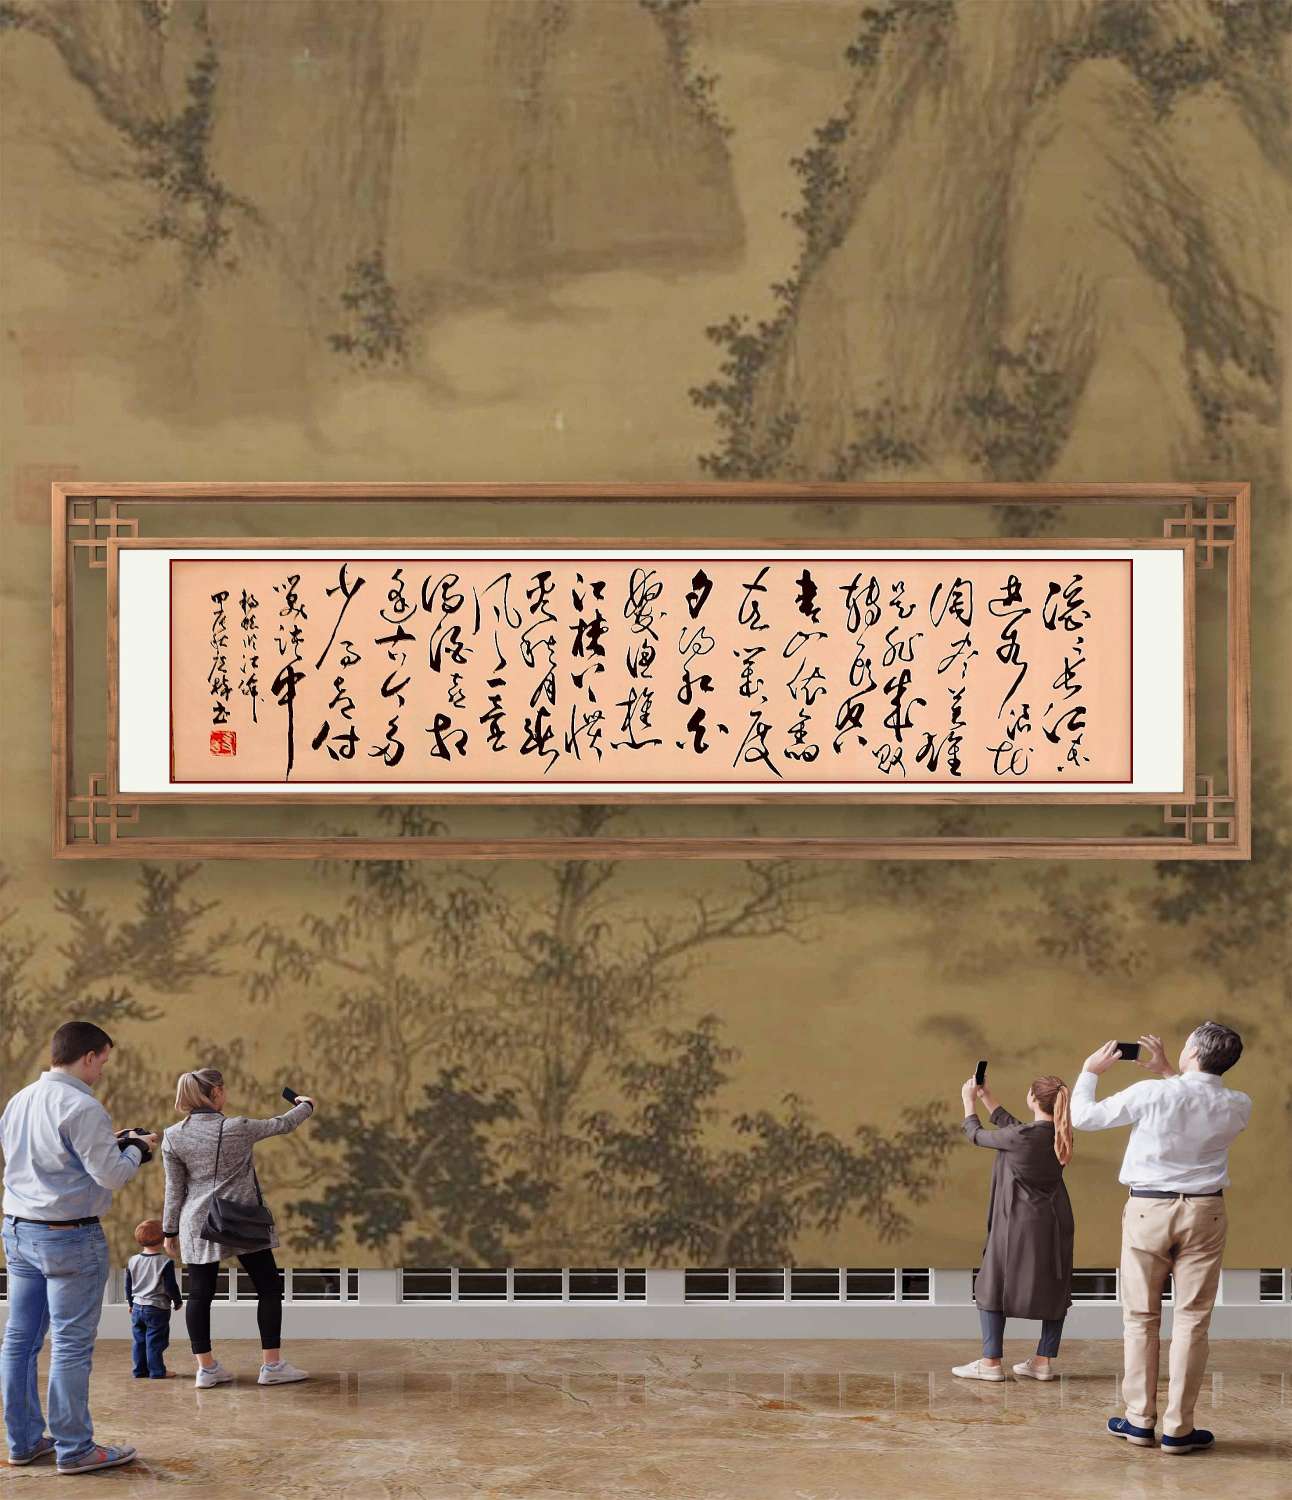 滚滚长江东
逝水浪花
淘尽英雄
是非成败
转头空
青山依旧
在几度
夕阳红白
发渔樵
江上惯
看秋月春
风一壶
浊酒喜相
逢古今多
少事都付
笑谈中
杨慎临江仙
甲辰书